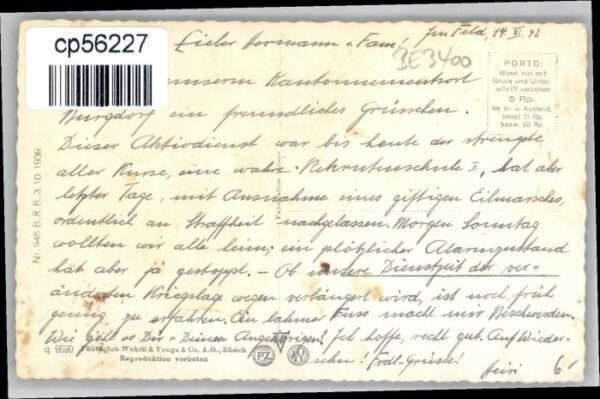 cp56227
Lieber Hermann u. Fam!
Im Feld, 14. XI. 42
BE3400
PORTO:
Wenn nur mit
Gruss und Unter-
schrift versehen
5 Rp.
unserm Kantonnementsort
Burgdorf ein freundliches Grüsschen.
Dieser Aktivdienst war bis heute der strengste
aller Kurse, eine wahre Rekrutenschule I, hat aber
letzter Tage, mit Ausnahme eines giftigen Eilmarsches,
ordentlich an Straffheit nachgelassen. Morgen Sonntag
wollten wir alle heim; ein plötzlicher Alarmzustand
hat aber ja gestoppt. – Ob unsere Dienstzeit der ver-
änderten Kriegslage wegen verlängert wird, ist noch früh
genug zu erfahren. Ein lahmer Fuss macht mir Beschwerden.
Wie geht es Dir + Deinen Angehörigen? Ich hoffe, recht gut. Auf Wieder-
sehn! Frdl. Grüsse!
Heiri
6'
Nr. 945 B.R.B. 3.10.1939
q 9690 Photoglob-Wehrli & Vouga & Co. A.G., Zürich
Reproduktion verboten
PZ